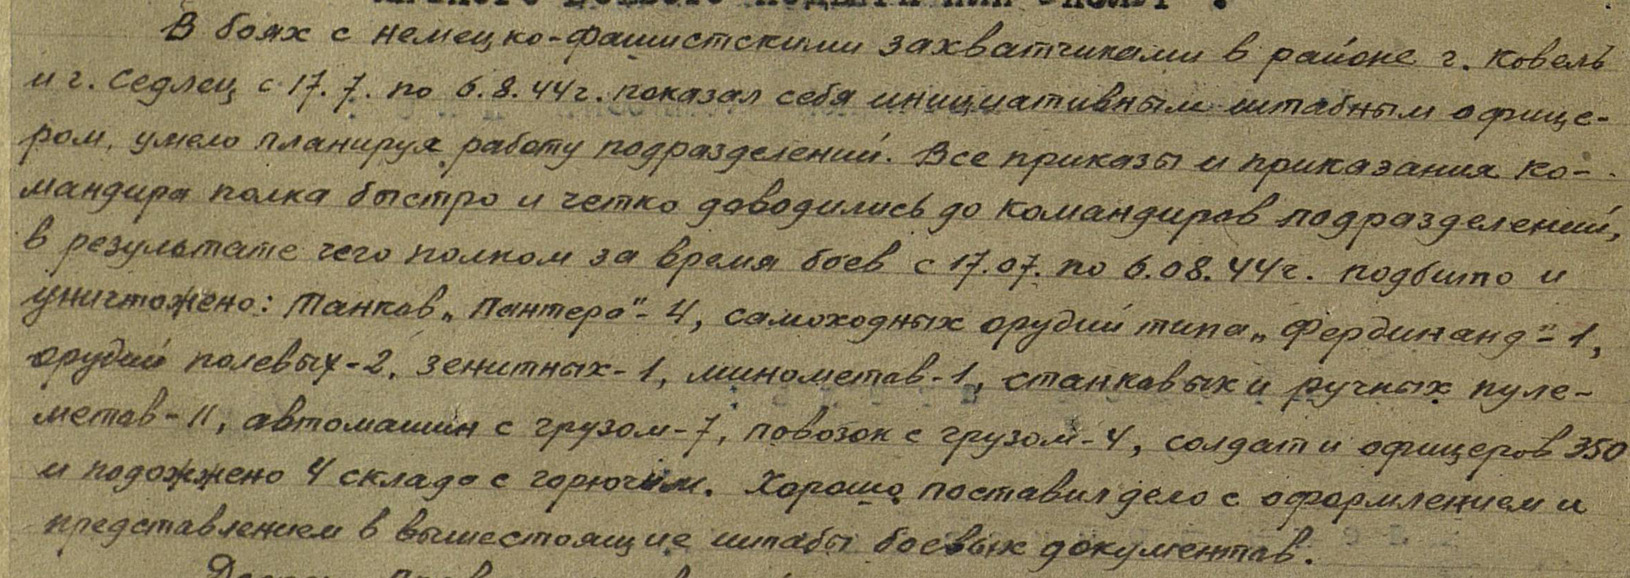 личного боевого подвига или заслуг".
В боях с немецко-фашистскими захватчиками в районе г. Ковель
и г. Седлец с 17.7. по 6.8.44г. показал себя инициативным штабным офице-
ром, умело планируя работу подразделений. Все приказы и приказания ко-
мандира полка быстро и четко доводились до командиров подразделений,
в результате чего полком за время боев с 17.07. по 6.08.44г. подбито и
уничтожено: Танков „Пантера"-4, самоходных орудий типа „Фердинанд"-1,
орудий полевых-2, зенитных-1, минометов-1, станковых и ручных пуле-
метов-11, автомашин с грузом-7, повозок с грузом-4, солдат и офицеров 350
и подожжено 4 склада с горючим. Хорошо поставил дело с оформлением и
представлением в вышестоящие штабы боевых документов.